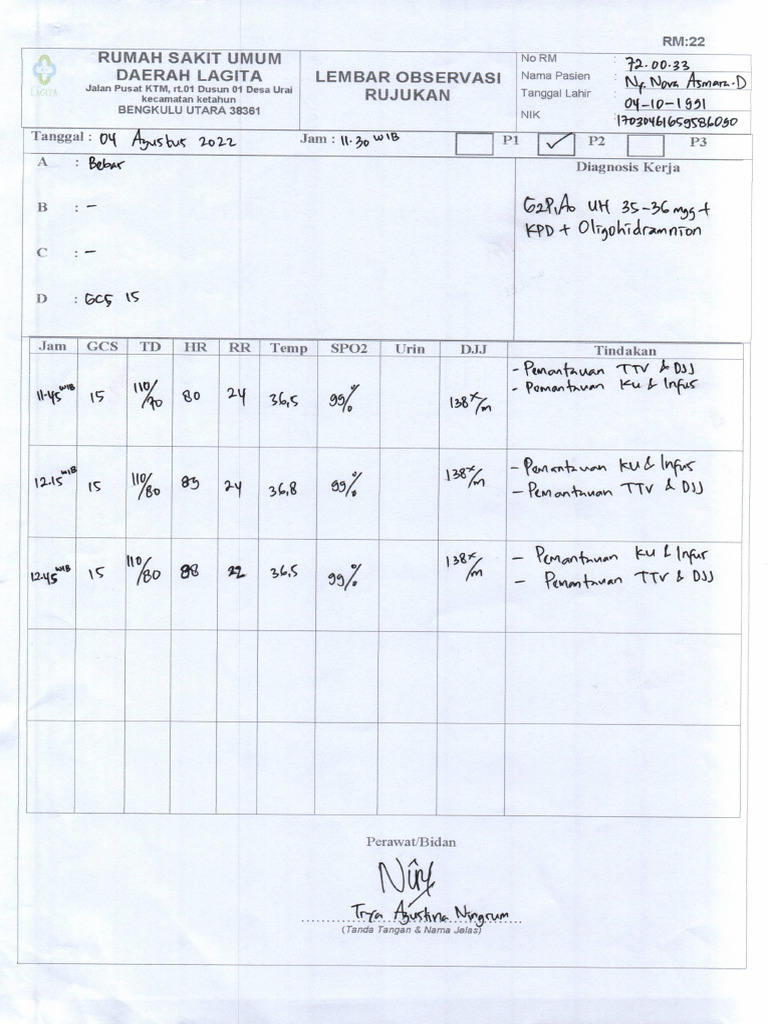 RM:22
LAGITA
RUMAH SAKIT UMUM
DAERAH LAGITA
Jalan Pusat KTM, rt.01 Dusun 01 Desa Urai
kecamatan ketahun
BENGKULU UTARA 38361
LEMBAR OBSERVASI
RUJUKAN
No RM : 72.00.33
Nama Pasien : Ny. Nova Asmara.D
Tanggal Lahir : 04-10-1991
NIK : 17030461659586090
Tanggal : 04 Agustus 2022 Jam : 11.30 WIB P1 ✓ P2 P3
A : Bebas
B : -
C : -
D : GCS 15
Diagnosis Kerja
G2P1A0 UH 35-36 mgg +
KPD + Oligohidramnion
Jam GCS TD HR RR Temp SPO2 Urin DJJ Tindakan
11.45 WIB 15 110/70 80 24 36,5 99% 138x/m - Pemantauan TTV & DJJ
- Pemantauan KU & Infus
12.15 WIB 15 110/80 89 24 36,8 99% 138x/m - Pemantauan KU & Infus
- Pemantauan TTV & DJJ
12.45 WIB 15 110/80 88 22 36,5 99% 138x/m - Pemantauan KU & Infus
- Pemantauan TTV & DJJ
Perawat/Bidan
Trya Agustina Ningrum
(Tanda Tangan & Nama Jelas)